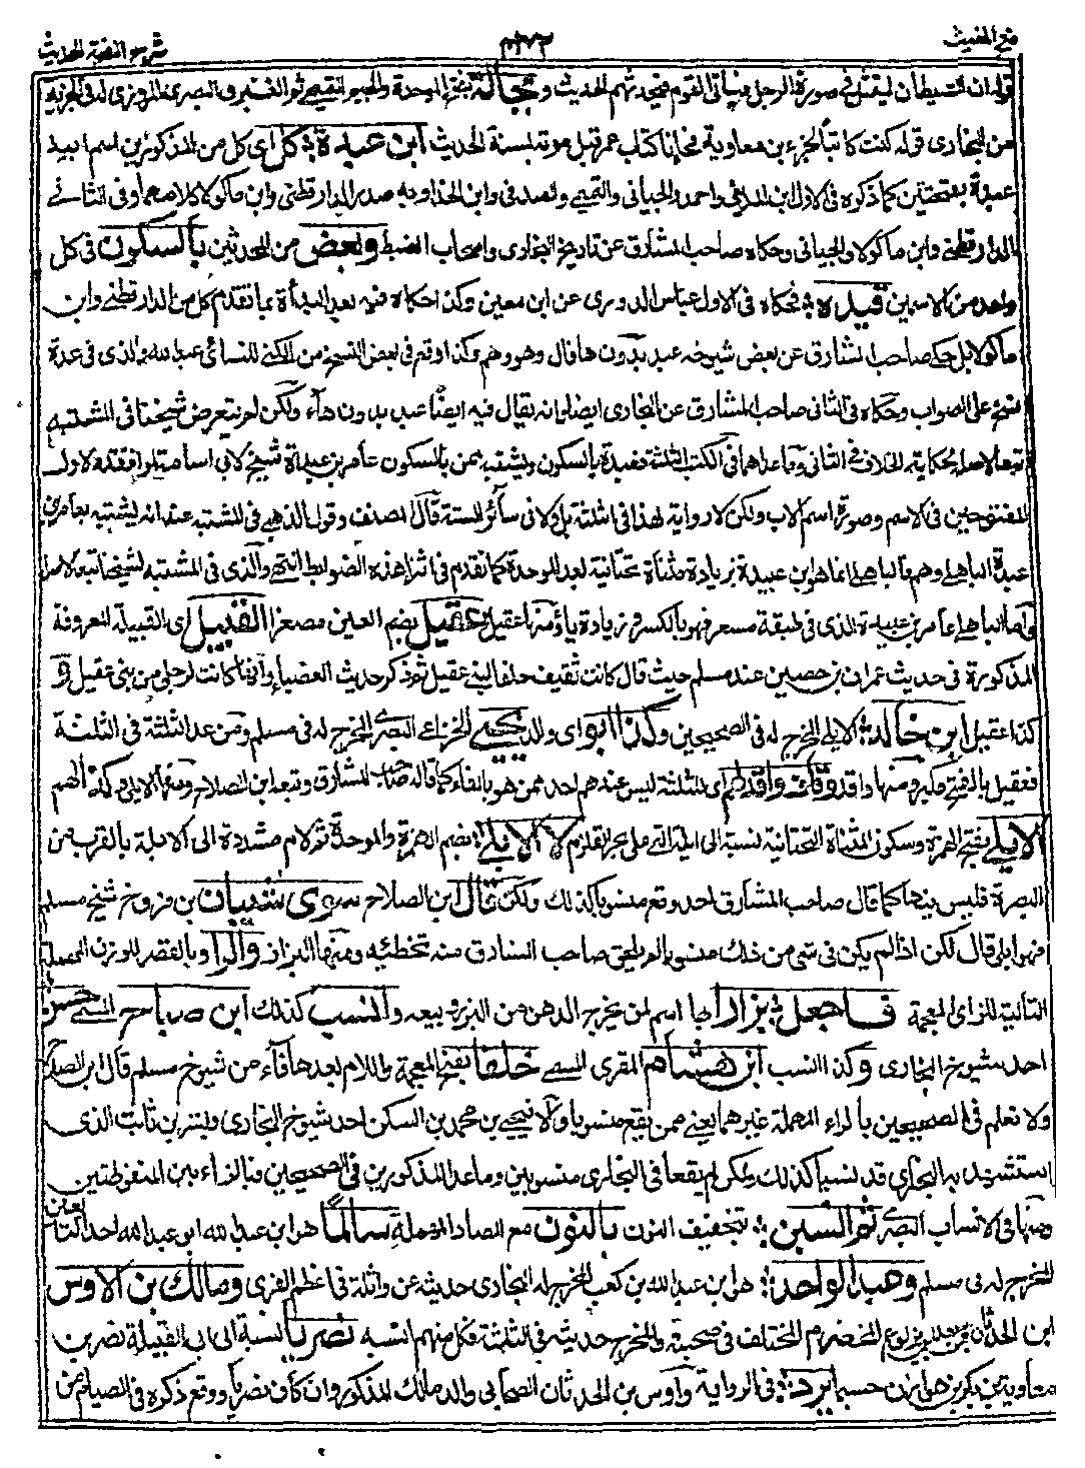 فتح المغيث ٤٣٢ شرح الفية الحديث
قوله ان الشيطان ليتمثل في صورة الرجل فيأتي القوم فيحدثهم الحديث وبجالة بفتح الموحدة والجيم التميمي ثم العنبري البصري له في الجزية
من البخاري قوله كنت كاتبا لجزء بن معاوية فجاءنا كتاب عمر قبل موته بسنة الحديث ابن عبدة كل اي كل من المذكورين اسم ابيه
عبدة بفتحتين كما ذكره في الاول ابن المديني واحمد والجياني والتميمي والصدفي وابن الحذاء وبه صدر الدارقطني وابن ماكولا كلامهما وفي الثاني
الدارقطني وابن ماكولا والجياني وحكاه صاحب المشارق عن تاريخ البخاري واصحاب الضبط وبعض من المحدثين بالسكون في كل
واحد من الاسمين قيده فحكاه في الاول عباس الدوري عن ابن معين وكذا حكاه فيه بعد البدأة بما تقدم كل من الدارقطني وابن
ماكولا بل حكى صاحب المشارق عن بعض شيوخه عبد بدون ها قال وهو وهم وكذا وقع في بعض النسخ من الكنى للنسائي عبد الله والذي في عدة
نسخ على الصواب وحكاه في الثاني صاحب المشارق عن البخاري ايضا وانه يقال فيه ايضا عبد بدون هاء ولكن لم يتعرض شيخنا في المشتبه
تبعا لاصله لحكاية الخلاف في الثاني وما عداهما في الكتب الثلثة فعبدة بالسكون ويشتبه بمن بالسكون عامر بن عبدة شيخ لابي اسامة لموافقته لاول
المفتوحين في الاسم وصورة اسم الاب ولكن لا رواية لهذا في الثلثة بل ولا في سائر الستة قال المصنف وقول الذهبي في المشتبه عنه انه يشتبه بعامر بن
عبدة الباهلي وهم فالباهلي انما هو ابن عبيدة بزيادة مثناة تحتانية بعد الموحدة كما تقدم في اثنا هذه الضوابط انتهى والذي في المشتبه لشيخنا تبعا لاصله
واما الباهلي عامر بن عبيدة الذي في طبقة مسعر فهو بالكسر وزيادة ياء ومنها عقيل عقيل بضم العين مصغرا القبيل اي القبيلة المعروفة
المذكورة في حديث عمران بن حصين عند مسلم حيث قال كانت ثقيف حلفا لبني عقيل ثم ذكر حديث العضباء وانها كانت لرجل من بني عقيل و
كذا عقيل ابن خالد الايلي المخرج له في الصحيحين وكذا ابو اي والد يحيى الخزاعي البصري المخرج له في مسلم ومن عد الثلثة في الثلثة
فعقيل بالفتح مكبر ومنها واقد وقاف واقد لهم اي للثلثة ليس عندهم احد ممن هو بالفاء كما قاله صاحب المشارق وتبعه ابن الصلاح ومنها الايلي وكذا لهم
الايلي بفتح الهمزة وسكون المثناة التحتانية نسبة الى ايلة التي على بحر القلزم لا الابلي بضم الهمزة والموحدة ثم لام مشددة الى الابلة بالقرب من
البصرة فليس بينها كما قال صاحب المشارق احد وقع منسوبا كذلك ولكن قال ابن الصلاح سوى شيبان بن فروخ شيخ مسلم
فهو ابلي قال لكن اذا لم يكن في شيء من ذلك منسوبا لم يلحق صاحب المشارق منه تخطئه ومنها البزار والرا وبالقصر للوزن المهملة
التالية للزاي المعجمة فاجعل بزارا لها اسم لمن يخرج الدهن من البزر ويبيعه والنسب كذلك ابن صباح المسمى حسن
احد شيوخ البخاري وكذا النسب ابن هشام المقري المسمى خلفا بفتح المعجمة واللام بعدها فاء من شيوخ مسلم قال ابن الصلاح
ولا نعلم في الصحيحين بالراء المهملة غيرهما يعني ممن يقع منسوبا والا فيحيى بن محمد بن السكن احد شيوخ البخاري وبشر بن ثابت الذي
استشهد به البخاري قد نسبا كذلك ولكن لم يقعا في البخاري منسوبين وما عدا المذكورين في الصحيحين فبالزاء من المنقوطتين
ومنها في الانساب البصري ثم النسبن تخفيف النون بالنون مع الصاد المهملة سالما هو ابن عبد الله ابو عبد الله احد التابعين
المخرج له في مسلم وعبد الواحد هو ابن عبد الله بن كعب المخرج له البخاري حديثه عن واثلة في اعظم الفرى ومالك بن الاوس
ابن الحدثان بن يربوع المخضرم المختلف في صحبته والمخرج حديثه في الثلثة فكل منهم انسبه نصريا نسبة الى اب القبيلة نصر بن
معاوية بن بكر بن هوازن حسبما يرد في الرواية واوس بن الحدثان الصحابي والد مالك المذكور وان كان نصريا ووقع ذكره في الصيام من